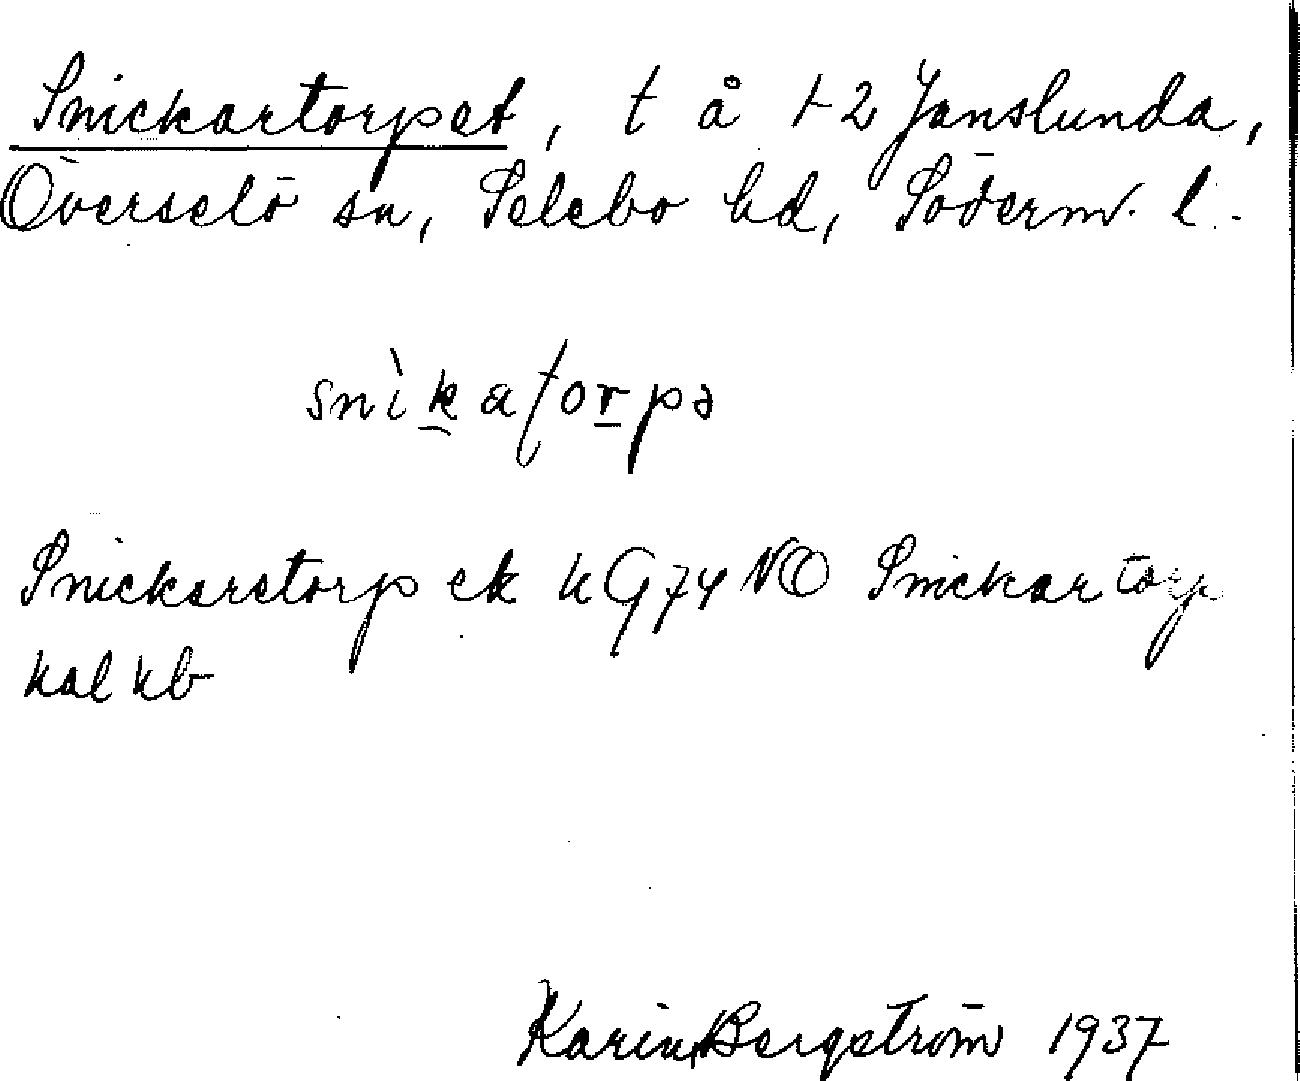 Snickartorpet, t å 1-2 Janslunda,
Överselö sn, Selebo hd, Söderm. l.
snìkatorpə
Snickarstorp ek k G74 NO Snickartorp
kal kb
Karin Bergström 1937